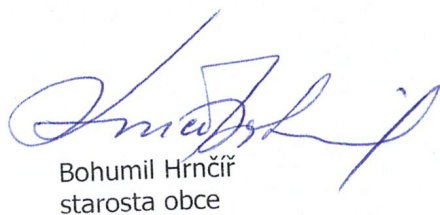 Bohumil Hrnčíř
starosta obce